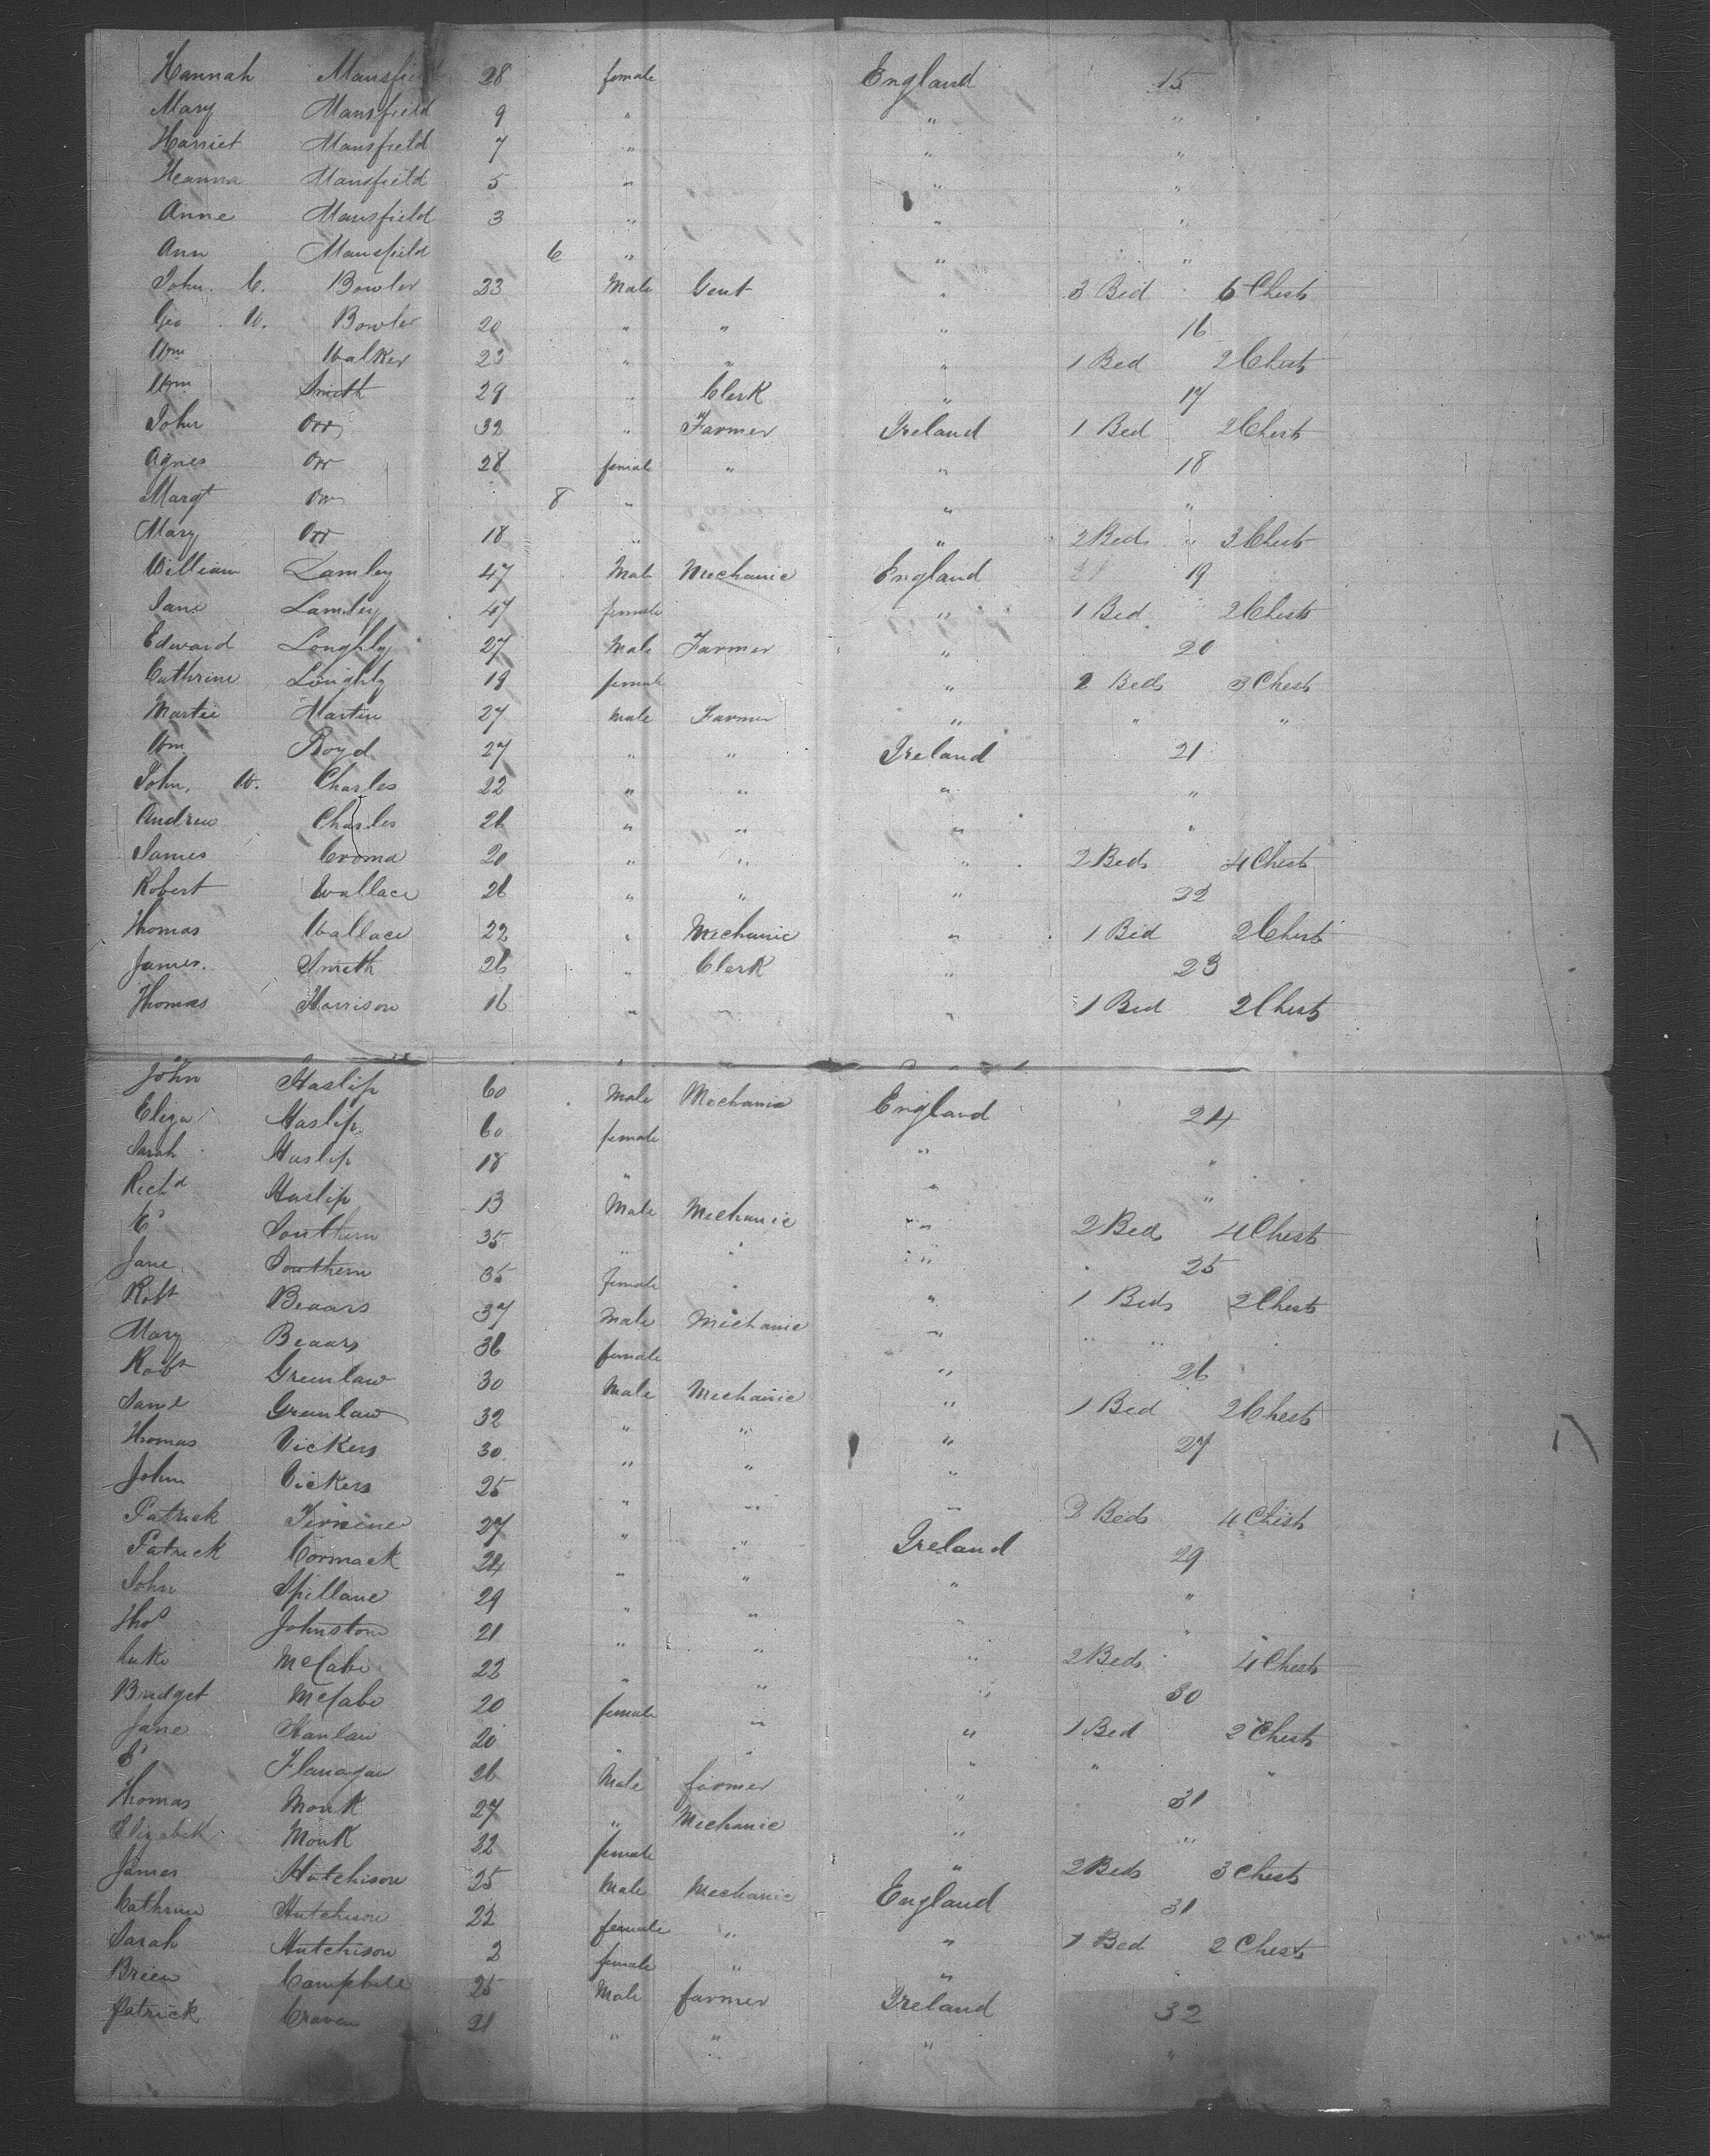 Hannah Mansfield 28 female England 15
Mary Mansfield 9 " " "
Harriet Mansfield 7 " " "
Heanna Mansfield 5 " " "
Anne Mansfield 3 " " "
Ann Mansfield 6 " " "
John. C. Bowler 23 Male Gent " 3 Bed 6 Chests
Geo. W. Bowler 20 " " " 16
Wm Walker 23 " " " 1 Bed 2 Chests
Wm Smith 29 " Clerk " 17
John Orr 32 " Farmer Ireland 1 Bed 2 Chests
Agnes Orr 28 female " " 18
Margt Orr 8 " " "
Mary Orr 18 " " 2 Beds " 3 Chests
William Lamley 47 Male Mechanic England 19
Jane Lamley 47 female " 1 Bed 2 Chests
Edward Loughly 27 Male Farmer " 20
Cathrine Loughly 19 female " 2 Beds 3 Chests
Martin 27 Male Farmer " " "
Wm Boyd 27 " " Ireland 21
John. W. Charles 22 " " " "
Andrew Charles 26 " " " "
James Croma 20 " " " 2 Beds 4 Chests
Robert Wallace 26 " " " 22
Thomas Wallace 22 " Mechanic " 1 Bed 2 Chests
James. Smith 26 " Clerk " 23
Thomas Harrison 16 " " " 1 Bed 2 Chests
John Haslip 60 Male Mechanic England 24
Eliza Haslip 60 female " "
Sarah Haslip 18 " " "
Richd Haslip 13 Male Mechanic " 2 Beds 4 Chests
Southern 35 " " " 25
Jane Southern 35 female " " 1 Beds 2 Chests
Robt Beaars 37 Male Mechanic " " "
Mary Beaars 36 female " 26
Robt Greenlaw 30 Male Mechanic " 1 Bed 2 Chests
Saml Greenlaw 32 " " " 27
Thomas Vickers 30 " " "
John Vickers 25 " " " 2 Beds 4 Chests
Patrick 27 " " Ireland 29
Patrick Cormack 24 " " " "
John Spillane 29 " " " "
Thos Johnston 21 " " " 2 Beds 4 Chests
Luke McCabe 22 " " " 30
Bridget McCabe 20 female " " 1 Bed 2 Chests
Jane Hanlan 20 " " " " "
Flanagan 26 Male farmer " 31
Thomas Monk 27 " Mechanic " "
Elizabeth Monk 22 female " 2 Beds 3 Chests
James Hutchison 25 Male Mechanic England 31
Cathrine Hutchison 22 female " " 1 Bed 2 Chests
Sarah Hutchison 2 female " " "
Brien Campbell 25 Male farmer Ireland 32
Patrick Craven 21 " " " "